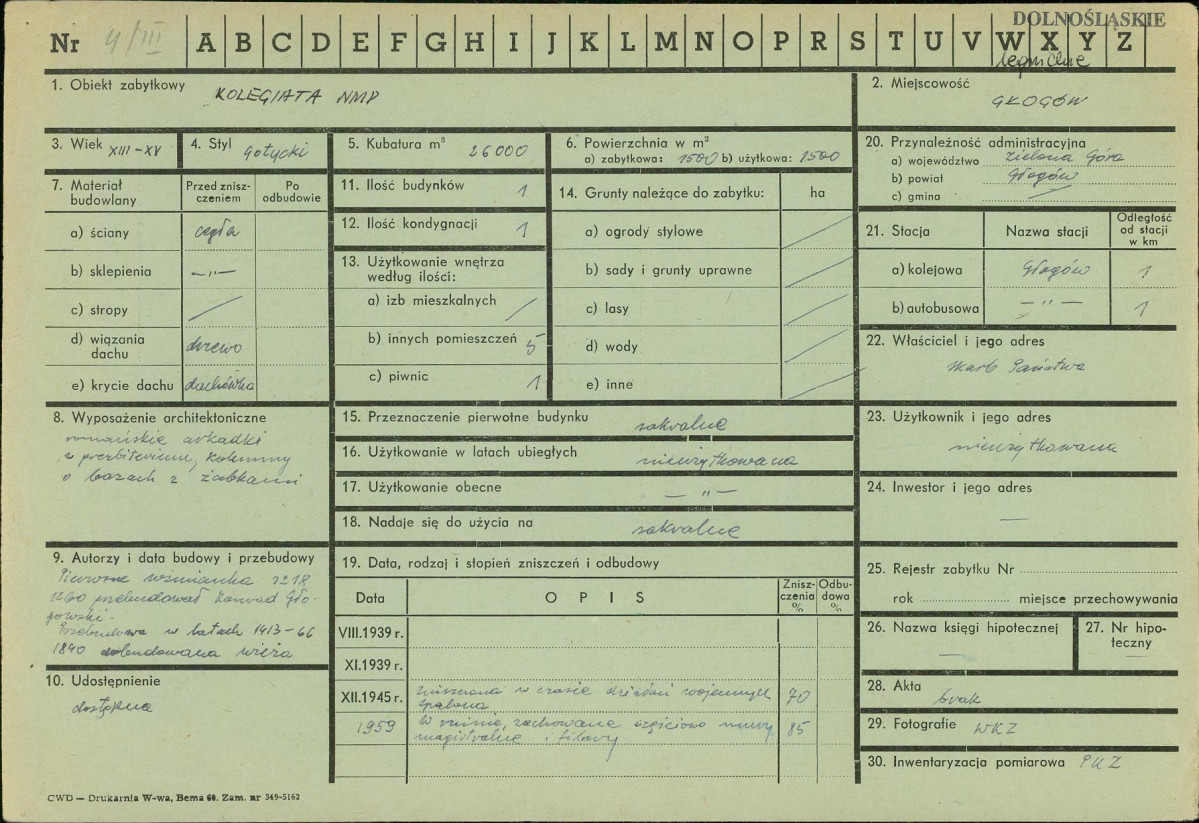 DOLNOŚLĄSKIE
Nr 4/III A B C D E F G H I J K L M N O P R S T U V W X Y Z
legnickie
1. Obiekt zabytkowy KOLEGIATA NMP
2. Miejscowość GŁOGÓW
3. Wiek XIII-XV
4. Styl gotycki
5. Kubatura m³ 26000
6. Powierzchnia w m²
a) zabytkowa: 1500 b) użytkowa: 1500
20. Przynależność administracyjna
a) województwo Zielona Góra
b) powiat Głogów
c) gmina —
7. Materiał budowlany
Przed zniszczeniem
Po odbudowie
a) ściany cegła
b) sklepienia —„—
c) stropy /
d) wiązania dachu drzewo
e) krycie dachu dachówka
11. Ilość budynków 1
12. Ilość kondygnacji 1
13. Użytkowanie wnętrza
według ilości:
a) izb mieszkalnych /
b) innych pomieszczeń 5
c) piwnic 1
14. Grunty należące do zabytku: ha
a) ogrody stylowe /
b) sady i grunty uprawne /
c) lasy /
d) wody /
e) inne /
21. Stacja Nazwa stacji Odległość od stacji w km
a) kolejowa Głogów 1
b) autobusowa —„— 1
22. Właściciel i jego adres
Skarb Państwa
8. Wyposażenie architektoniczne
romańskie arkadki
w prezbiterium, kolumny
o bazach z żabkami
15. Przeznaczenie pierwotne budynku sakralne
16. Użytkowanie w latach ubiegłych nieużytkowana
17. Użytkowanie obecne —„—
18. Nadaje się do użycia na sakralne
23. Użytkownik i jego adres
nieużytkowana
24. Inwestor i jego adres
—
9. Autorzy i data budowy i przebudowy
Pierwsza wzmianka 1218
1260 przebudował Konrad Gło-
gowski.
Przebudowa w latach 1413-66
1840 dobudowana wieża
10. Udostępnienie
dostępna
19. Data, rodzaj i stopień zniszczeń i odbudowy
Data OPIS Zniszczenia % Odbudowa %
VIII.1939 r.
XI.1939 r.
XII.1945 r. zniszczona w czasie działań wojennych 70
spalona
1959 W ruinie, zachowane częściowo mury 85
magistralne i filary
25. Rejestr zabytku Nr
rok miejsce przechowywania
26. Nazwa księgi hipotecznej —
27. Nr hipoteczny —
28. Akta brak
29. Fotografie WKZ
30. Inwentaryzacja pomiarowa PKZ
CWD — Drukarnia W-wa, Bema 60. Zam. nr 349-5162